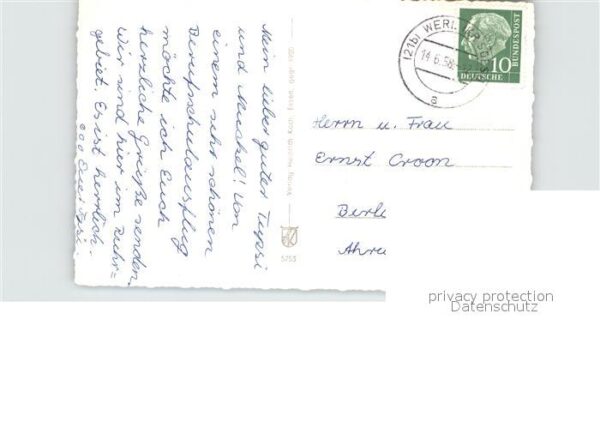 Mein lieber guter Tupsi
und Muckel! Von
einem sehr schönen
Berufschulausflug
möchte ich Euch
herzliche Grüße senden.
Wir sind hier im Ruhr=
gebiet. Es ist herrlich.
Verlag Heinrich Koch, Essen
5755
(21b) WERL
14.6.58
a
10
DEUTSCHE
BUNDESPOST
Herrn u. Frau
Ernst Croon
Berl
Ahre
privacy protection
Datenschutz